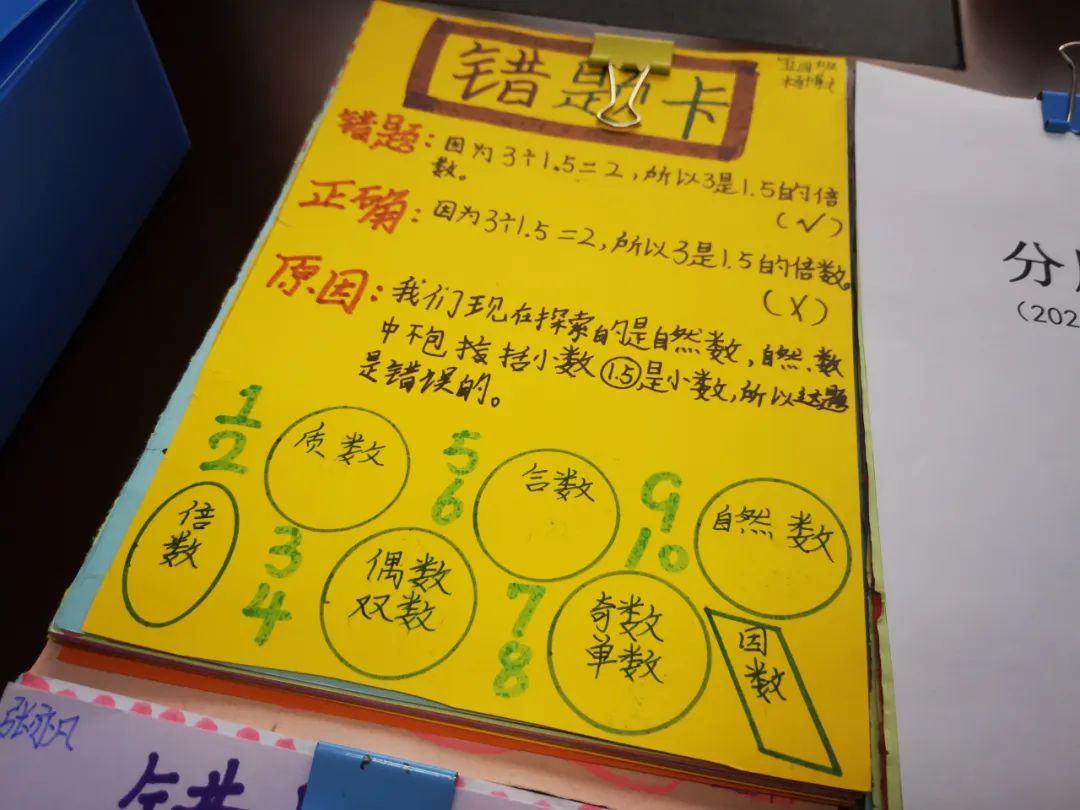 错题卡
错题：因为3÷1.5=2，所以3是1.5的倍
数。
(√)
正确：因为3÷1.5=2，所以3是1.5的倍数。
(X)
原因：我们现在探索的是自然数，自然数
中不包括小数 1.5是小数，所以这题
是错误的。
1
2
质数
5
6
合数
9
10
自然数
倍
数
3
4
偶数
双数
7
8
奇数
单数
因
数
分
(202
张
错